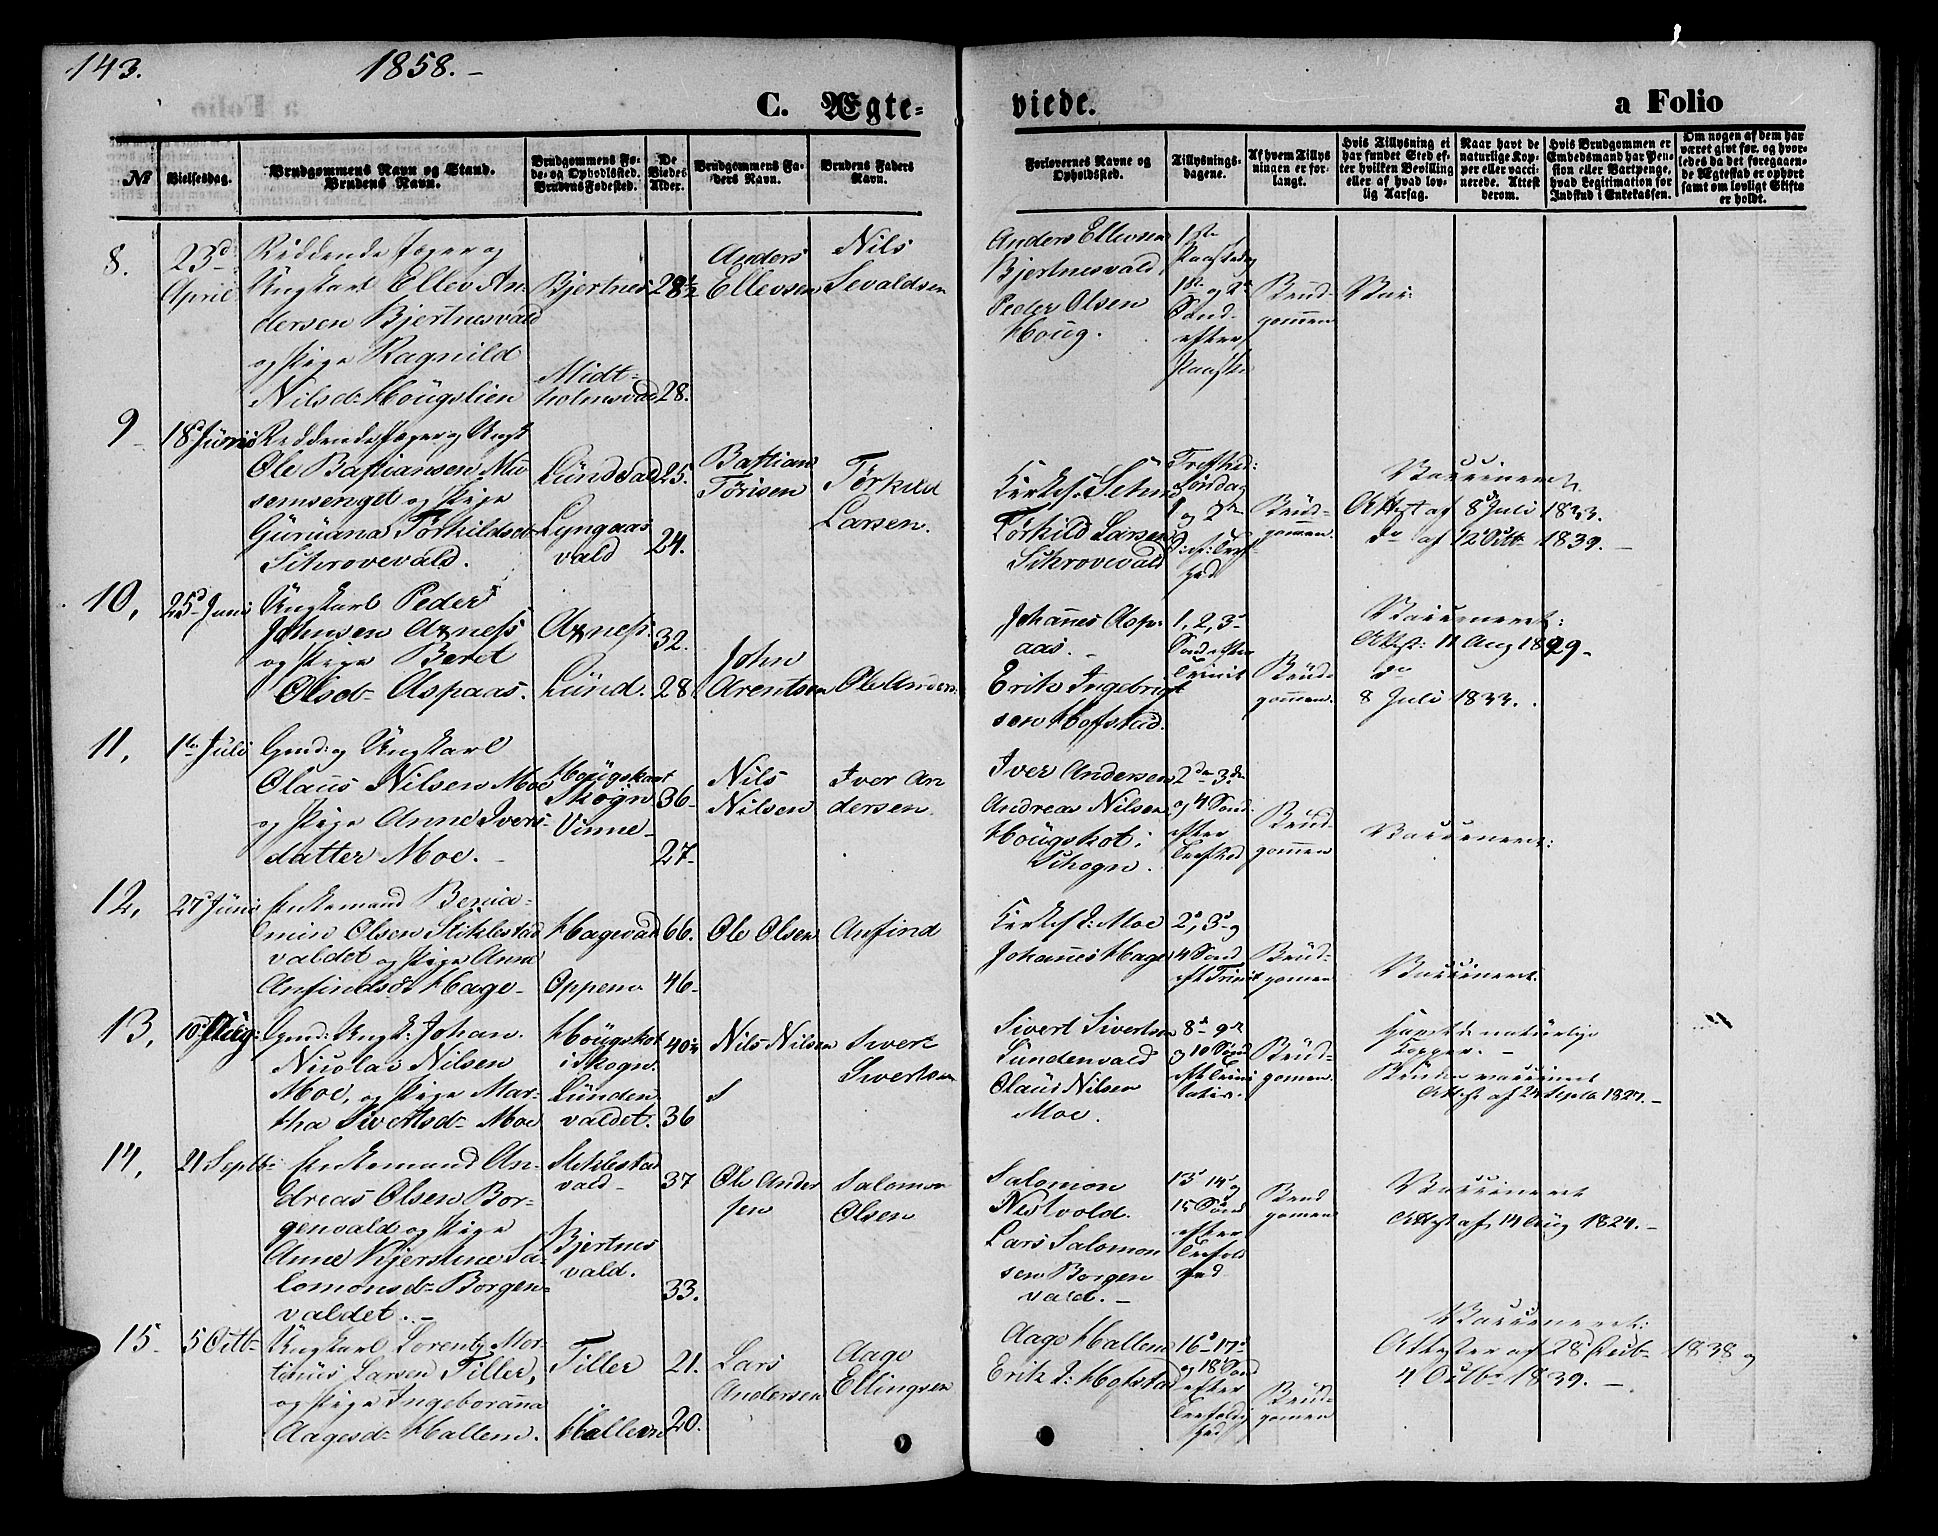 143. 1858.-
C. Ægte-
viede.
a Folio
No
Vielsesdag.
Brudgommens Navn og Stand.
Brudens Navn.
Brudgommens Fø-
de- og Opholdssted.
Brudens Fødested.
De
Viedes
Alder.
Brudgommens Fa-
ders Navn.
Brudens Faders
Navn.
Forlovernes Navne og
Opholdssted.
Tillysnings-
dagene.
Af hvem Tillys
ningen er for-
langt.
Hvis Tillysning ei
har fundet Sted ef-
ter hvilken Bevilling
eller af hvad lov-
lig Aarsag.
Naar havt de
naturlige Kop-
per eller vacci-
nerede. Attest
derom.
Hvis Brudgommen er
Embedsmand har Pen-
sion eller Vartpenge,
hvad Legitimation for
Indskud i Enkekassen.
Om nogen af dem har
været gift før, og hvor-
ledes da det foregaaen-
de Ægteskab er ophørt
samt om lovligt Skifte
er holdt.
8. 23d
April
Riddende Jæger og
Ungkarl Ellev An-
dersen Bjertnesvald
og Pige Ragnild
Nilsd- Hougslien
Bjertnes
Midt-
holmsvald
28½
28.
Anders
Ellevsen
Nils
Sevaldsen
Anders Ellevsen
Bjertnesvald
Peder Olsen
Houg.
1ste
Paaskedag
1ste og 2d
Sønd.
efter
Paaske
Brud-
gommen
Vac:
9 18d Juni
Riddende Jæger og Ungk
Ole Bastiansen Mu
semsenget og Pige
Guruana Tørkildsd-
Schrovevald.
Lundvald
Lyngaas
vald
25.
24.
Bastian
Tørisen
Tørkild
Larsen.
Kirkes: Sehm
Tørkild Larsen
Schrovevald
Trefhed:
Søndag
1 og 2den
S: ef: Tref-
hed
Brud-
gommen.
Vaccineret.
Attest af 8d Juli 1833.
do af 12 Octb 1839.-
10, 25d Juni
Ungkarl Peder
Johnsen Axness
og Pige Beret
Olsd- Aspaas.
Axness.
Lund.
32.
28
John
Arentsen
Ole Anders.
Johanes Asp-
aas.-
Erik Ingebrigt
sen Hofstad.
1, 2, 3d
Sønd. efter
Trinit
Brud-
gommen.
Vaccineret:
Attest: 11 Aug 1829-
do
8 Juli 1833.
11, 1ste Juli
Gmd: og Ungkarl
Olaus Nilsen Moe
og Pige Anne Ivers-
datter Moe.-
Hougskot
Skogn
Vinne-
36-
27-
Nils
Nilsen
Iver An
dersen.
Iver Andersen
Andreas Nilsen
Hougskot i
Schogn.
2den 3die
og 4 Sønd:
efter
Trefhed
Brud-
gommen
Vaccineret:
12, 27d Juni
Enkemand Benia-
min Olsen Stiklestad
valdet og Pige Anne
Anfindsdt Hage-
Hagevald
Oppem
66.
46-
Ole Olsen
Anfind
Kirkes J: Moe
Johannes Hage
2d, 3d og
4 Sønd
eft Trinit
Brud-
gommen
Vaccineret.
13, 10d Aug:
Gmd: Ungk: Johan
Nicolai Nilsen
Moe, og Pige Mar-
tha Sivertsd- Moe
Hougskot
i Skogn.
Lunden
valdet.
40½
36
Nils Nilsen
Sivert
Sivertsen
Sivert Sivertsen
Lundenvald
Olaus Nilsen
Moe.
8d 9de
og 10 Sønd
eft Trini
tatis.
Brud-
gommen.
Havt de naturlige
Kopper.-
Bruden vaccineret
Attest af 24 Septb 1827.-
14, 21 Septb:
Enkemand An-
dreas Olsen Bor-
genvald og Pige
Anne Kjerstine Sa-
lomonsd- Borgen-
valdet.-
Stiklestad
vald-
Bjertnes
vald.
37
33.
Ole Ander
sen
Salomon
Olsen
Salomon
Nestvold.
Lars Salomon
sen Borgen
vald.-
13d 14d og
15 Sønd
efter
Trefold
hed
Brud
gommen
Vaccineret
Attest af 14 Aug 1824.-
15- 5 Octb-
Ungkarl Lorentz Mor-
tinus Larsen Tiller,
og Pige Ingeborana
Aagesd- Hallem.
Tiller
Hallem
21.
20.
Lars
Andersen
Aage
Ellingsen
Aage Hallem
Erik J: Hofstad
16d 17d
og 18d Sønd
efter
Trefoldig
hed
Brud-
gommen
Vaccineret:
Attester af 28 Feb- 1838 og
4 Octbr 1839.-